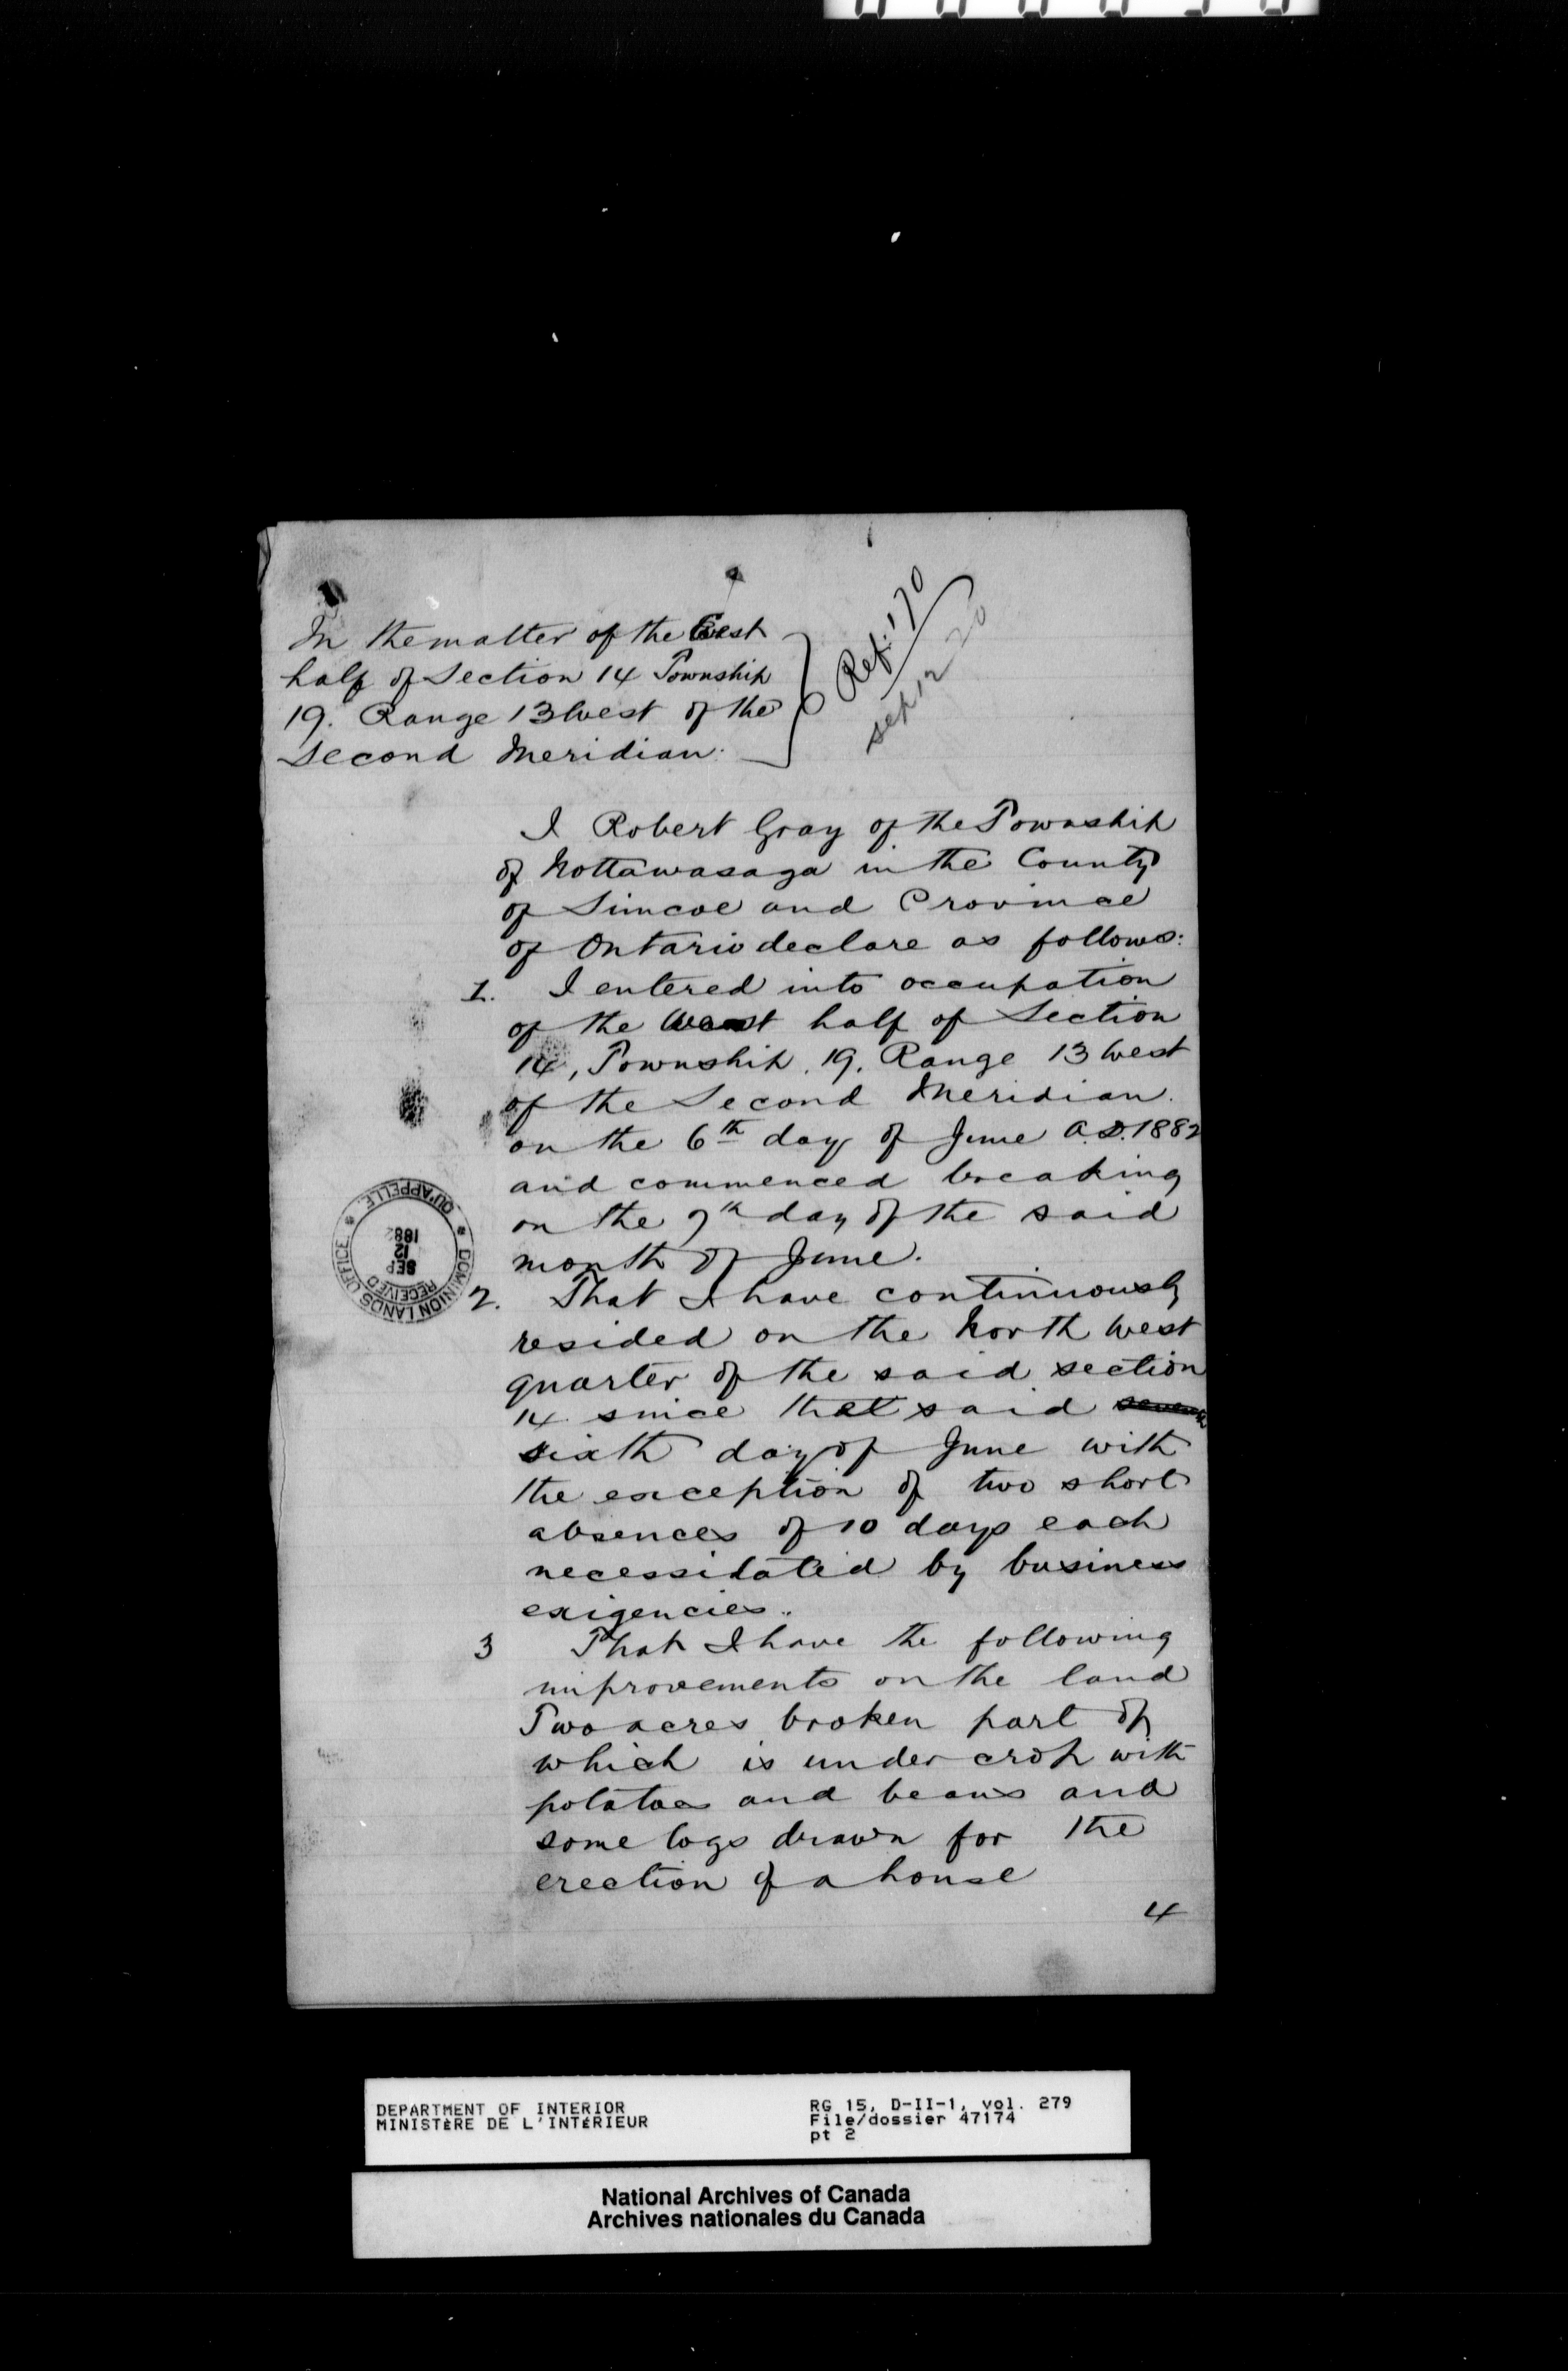 In the matter of the West
half of Section 14 Township
19. Range 13 West of the
Second Meridian.
Ref. 170
Sep 12 20
I Robert Gray of the Township
of Nottawasaga in the County
of Simcoe and Province
of Ontario declare as follows:
1. I entered into occupation
of the West half of Section
14, Township. 19. Range 13 West
of the Second Meridian.
on the 6th day of June A.D. 1882
and commenced breaking
on the 7th day of the said
month of June.
DOMINION LANDS OFFICE * QU'APPELLE. *
RECEIVED
SEP
12
188
2. That I have continuously
resided on the North West
quarter of the said section
14 since that said seventh
sixth day of June with
the exception of two short
absences of 10 days each
necessitated by business
exigencies..
3 That I have the following
improvements on the land
Two acres broken part of
which is under crop with
potatoes and beans and
some logs drawn for the
erection of a house
4
DEPARTMENT OF INTERIOR
MINISTÈRE DE L'INTÉRIEUR
RG 15, D-II-1, vol. 279
File/dossier 47174
pt 2
National Archives of Canada
Archives nationales du Canada